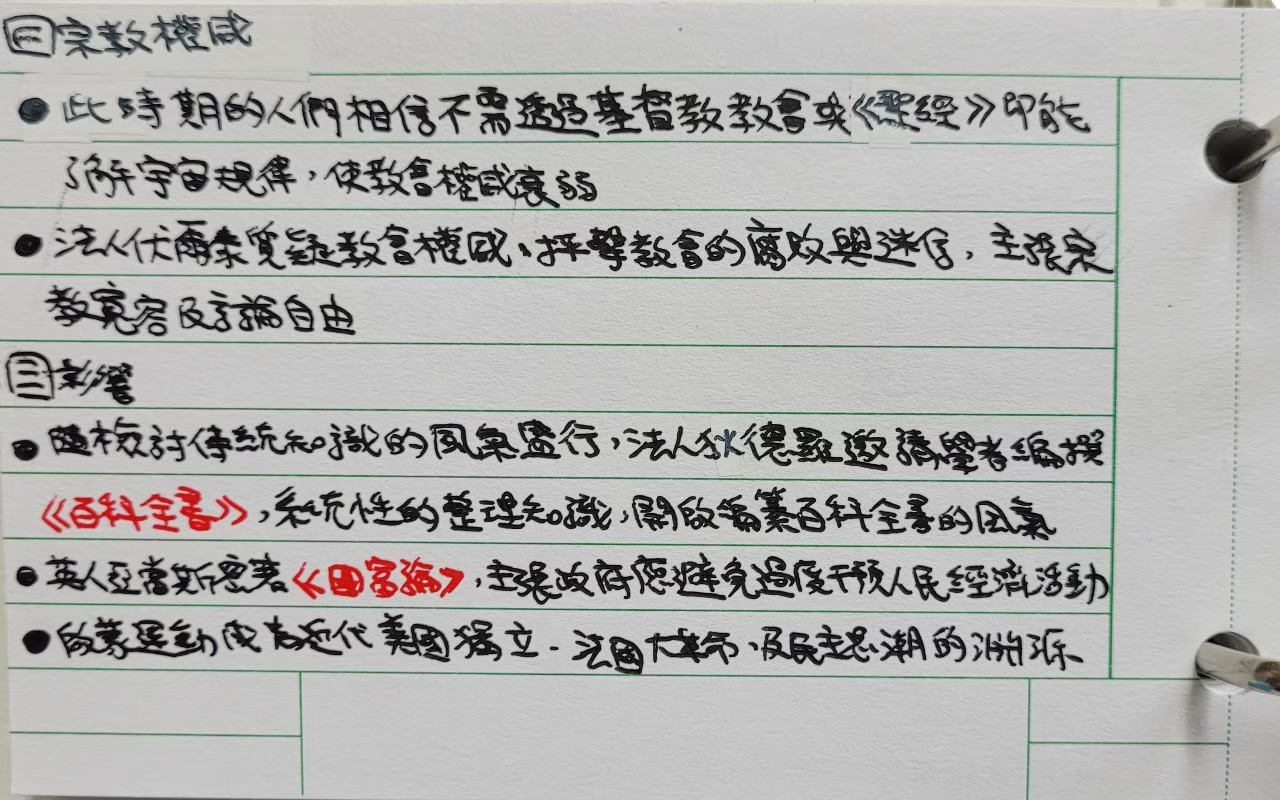 ㊁宗教權威
●此時期的人們相信不需透過基督教教會或《聖經》即能
了解宇宙規律，使教會權威衰弱
●法人伏爾泰質疑教會權威、抨擊教會的腐敗與迷信，主張宗
教寬容及言論自由
㊂影響
●隨檢討傳統知識的風氣盛行，法人狄德羅邀請學者編撰
《百科全書》，系統性的整理知識，開啟編纂百科全書的風氣
●英人亞當斯密著《國富論》，主張政府應避免過度干預人民經濟活動
●啟蒙運動成為近代美國獨立、法國大革命、及民主思潮的淵源